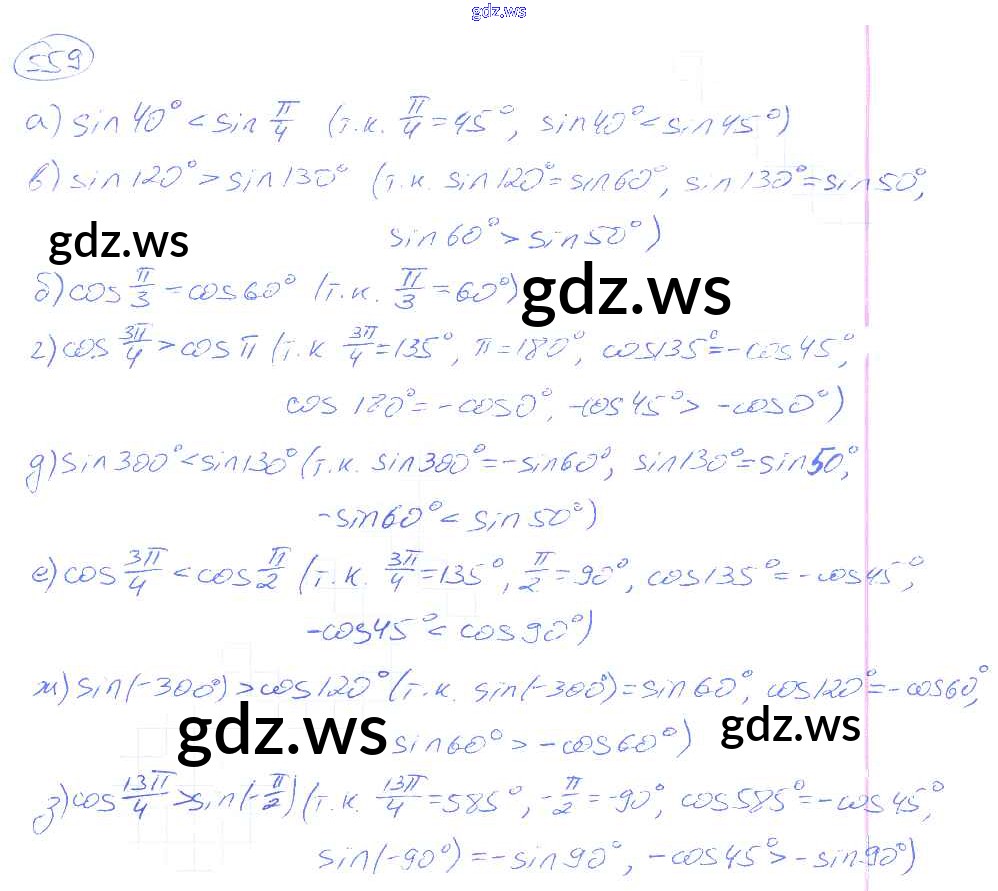 gdz.ws
559
а) sin 40° < sin π/4 (т.к. π/4 = 45°, sin 40° < sin 45°)
в) sin 120° > sin 130° (т.к. sin 120° = sin 60°, sin 130° = sin 50°,
gdz.ws sin 60° > sin 50°)
б) cos π/3 = cos 60° (т.к. π/3 = 60°) gdz.ws
г) cos 3π/4 > cos π (т.к 3π/4 = 135°, π = 180°, cos 135° = - cos 45°,
cos 180° = - cos 0°, - cos 45° > - cos 0°)
д) sin 300° < sin 130° (т.к. sin 300° = - sin 60°, sin 130° = sin 50°,
- sin 60° < sin 50°)
е) cos 3π/4 < cos π/2 (т.к. 3π/4 = 135°, π/2 = 90°, cos 135° = - cos 45°,
- cos 45° < cos 90°)
ж) sin(-300°) > cos 120° (т.к. sin(-300°) = sin 60°, cos 120° = - cos 60°,
gdz.ws sin 60° > - cos 60°) gdz.ws
з) cos 13π/4 > sin(-π/2) (т.к. 13π/4 = 585°, -π/2 = -90°, cos 585° = - cos 45°,
sin(-90°) = - sin 90°, - cos 45° > - sin 90°)